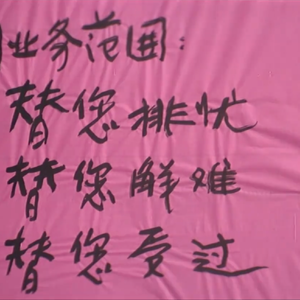 业务范围:
替您排忧
替您解难
替您受过